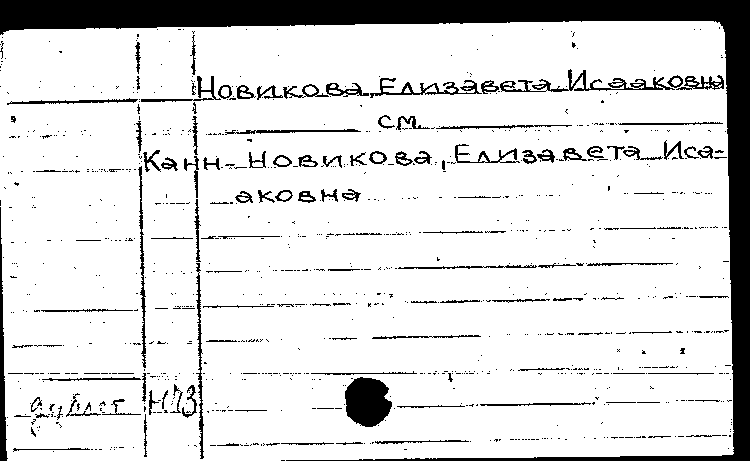 Новикова, Елизавета Исааковна
см.
Канн-Новикова, Елизавета Иса-
аковна
дублет НЧЗ